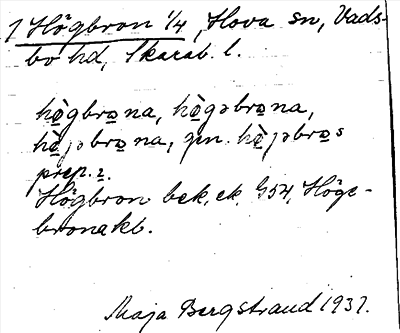 1 Högbron 1/4, Hova sn, Vads-
bo hd, Skarab. l.
hö̀gbro̲na, hö̀gəbro̲na,
hö̀jəbro̲na, gen. hö̀jəbro̲s
prep. i.
Högbron bek. ek. G54, Höge-
bronakb.
Maja Bergstrand 1937.